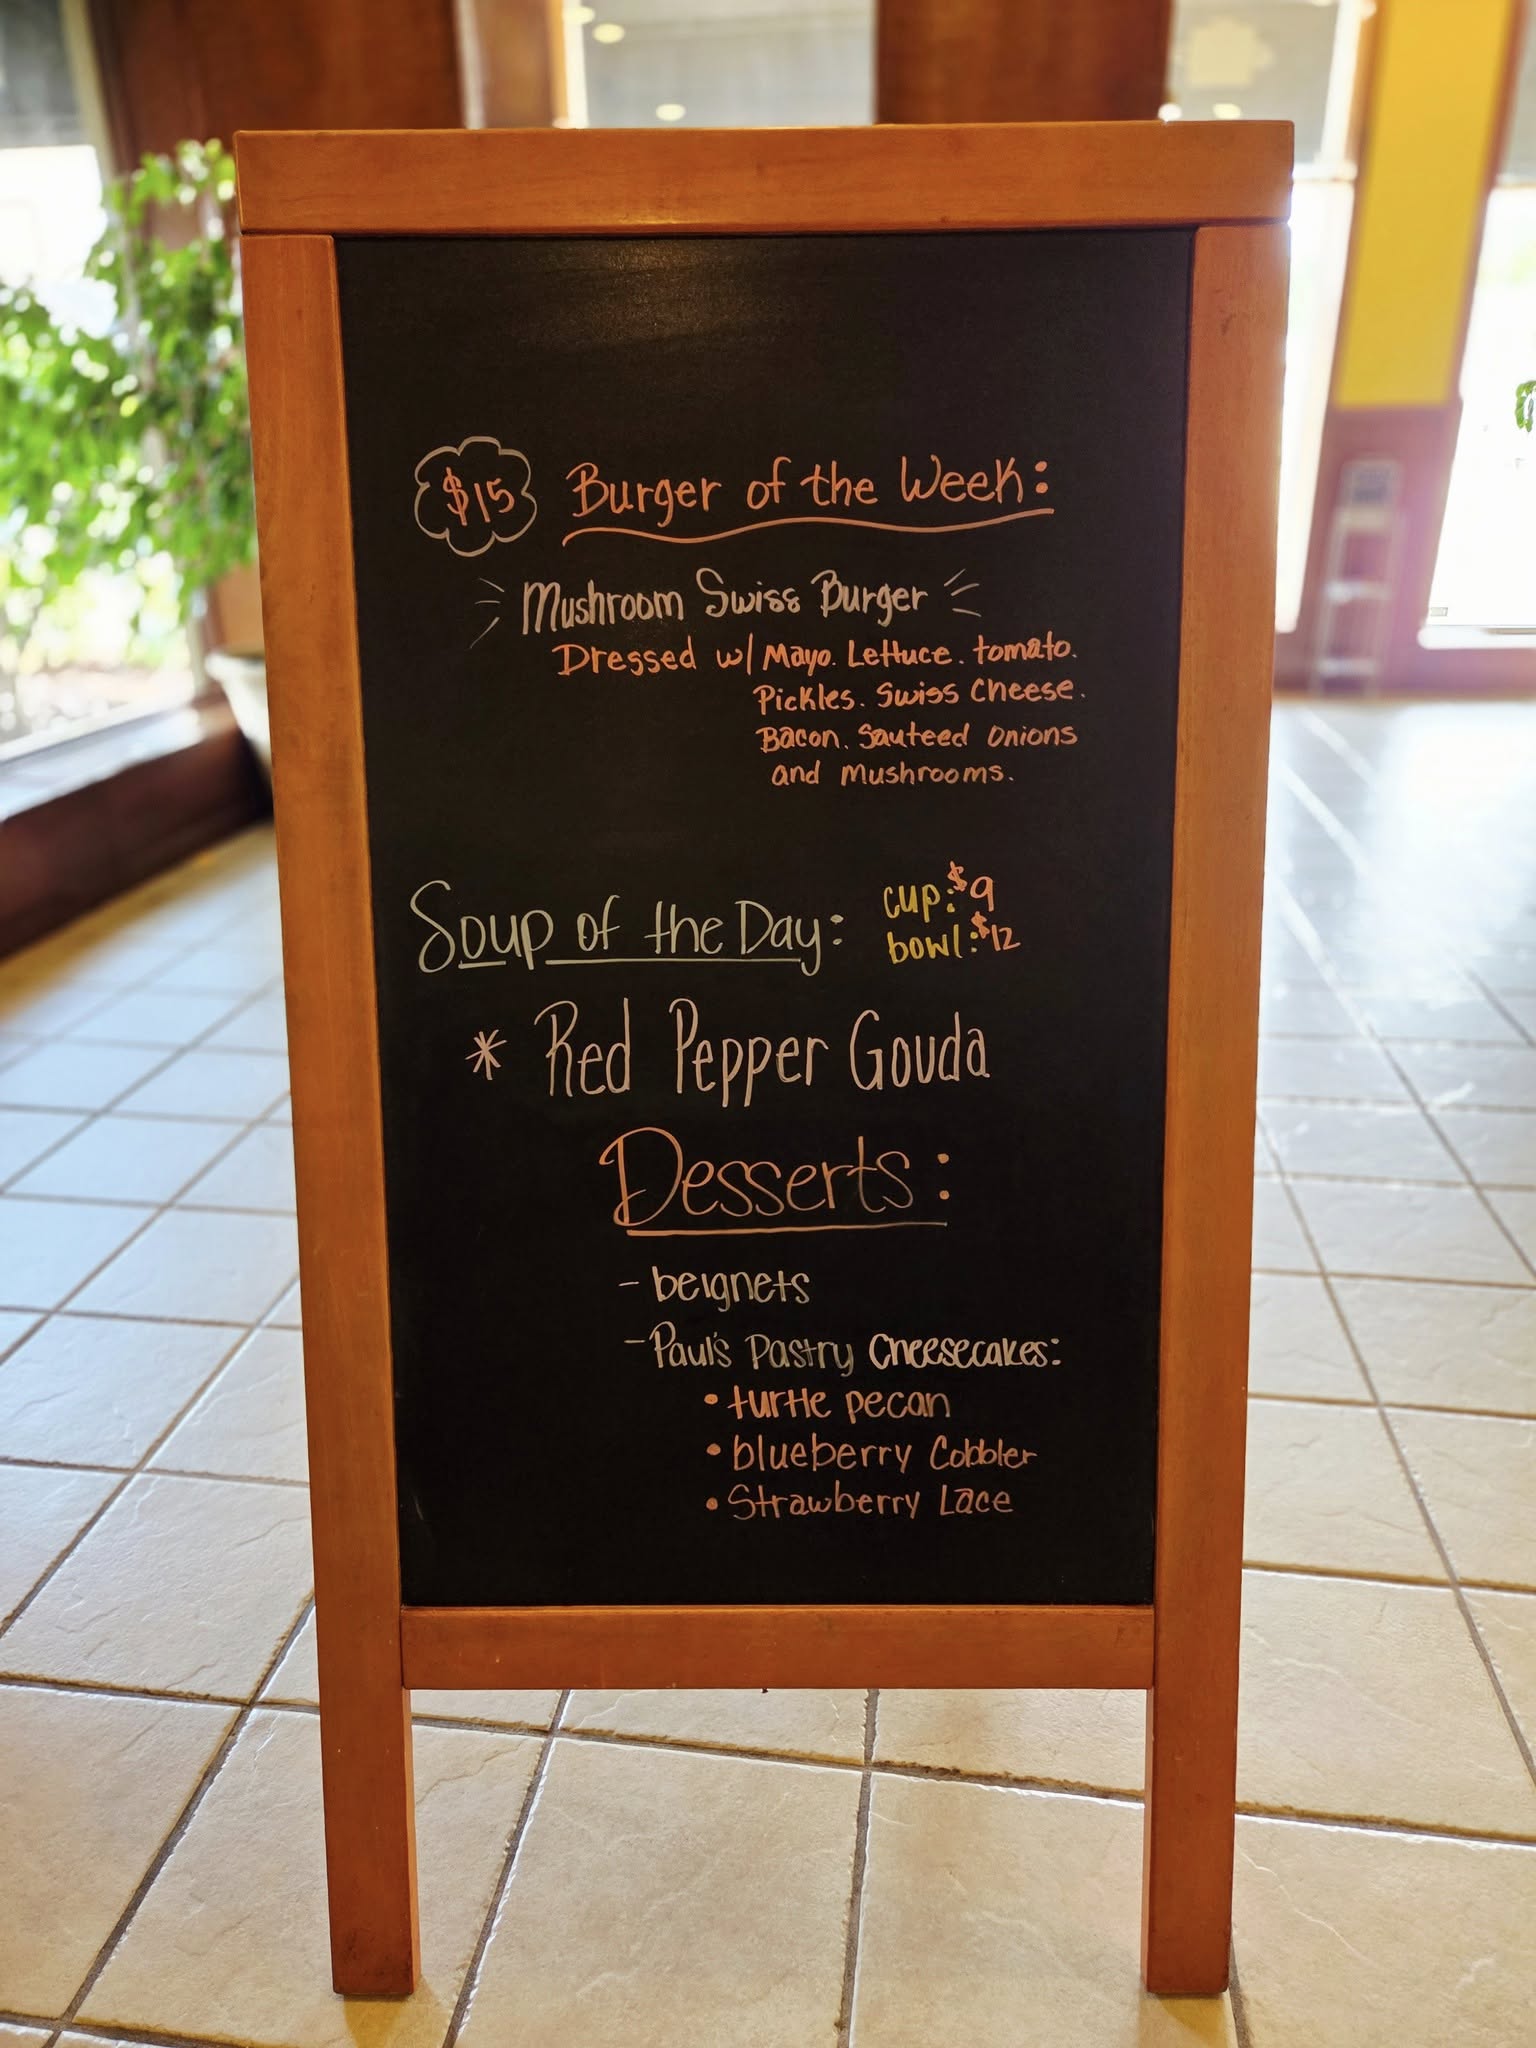 $15 Burger of the Week:
Mushroom Swiss Burger
Dressed w/ Mayo. Lettuce. tomato.
Pickles. Swiss Cheese.
Bacon. Sauteed onions
and mushrooms.
Soup of the Day: cup: $9
bowl: $12
* Red Pepper Gouda
Desserts:
- beignets
- Paul's Pastry Cheesecakes:
• turtle pecan
• blueberry Cobbler
• Strawberry Lace